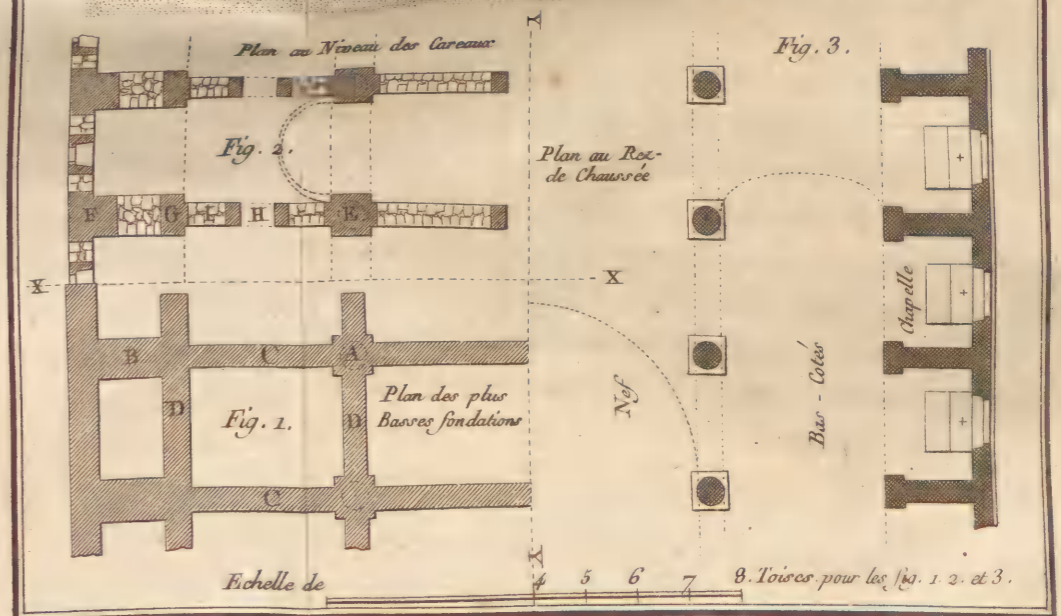 Plan au Niveau des Careaux
Y
Fig. 3.
Fig. 2.
Plan au Rez-
de Chaussée
F G I H E
X X
Chapelle
B C A
Plan des plus
Basses fondations
D Fig. 1. D
Nef
Bas - Cotés
C
Y
Echelle de 4 5 6 7 8. Toises pour les fig. 1. 2. et 3.